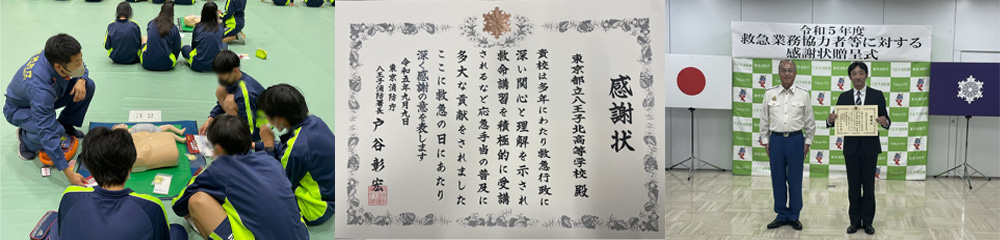 32
感謝状
東京都立八王子北高等学校 殿
貴校は多年にわたり救急行政に
深い関心と理解を示され
救命講習を積極的に受講
されるなど応急手当の普及に
多大な貢献をされました
ここに救急の日にあたり
深く感謝の意を表します
令和五年九月九日
東京消防庁
八王子消防署長 戸谷彰宏
令和5年度
救急業務協力者等に対する
感謝状贈呈式